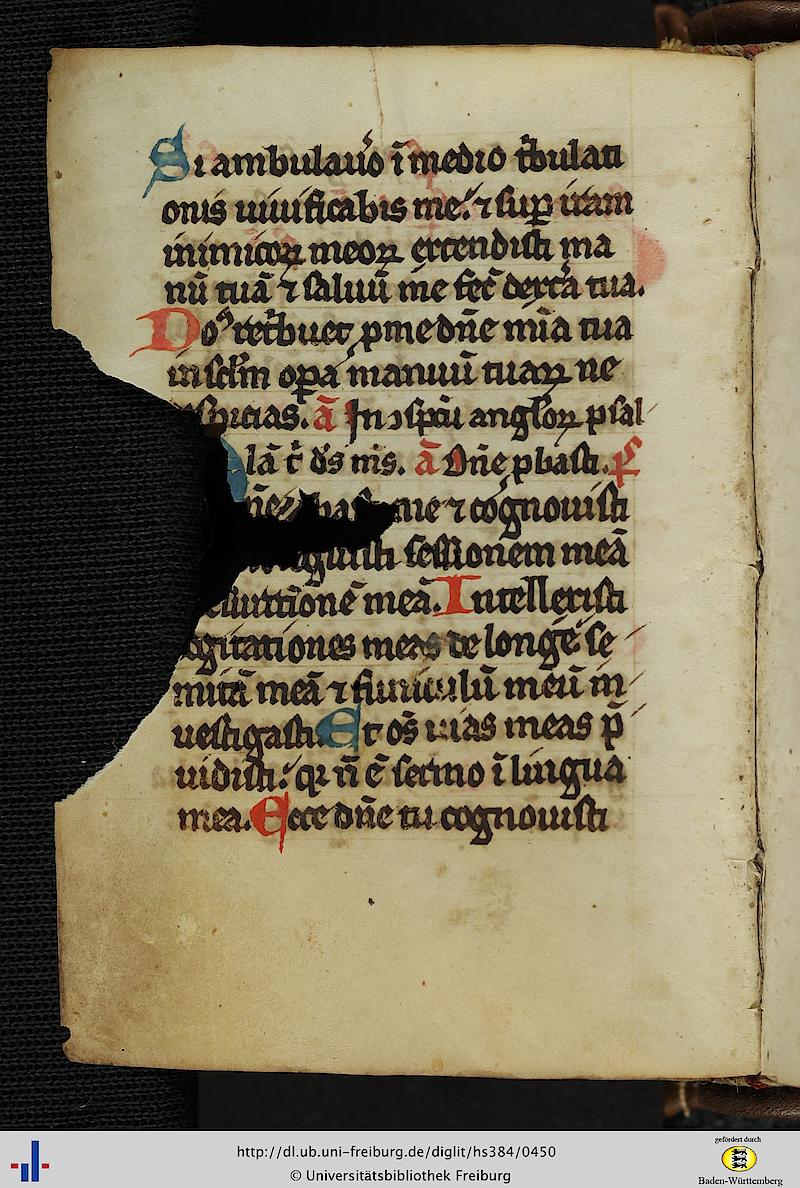 Si ambulau͛o ī medio t͛bulati
onis uiuificabis me. ⁊ suꝑ iram
inimicoꝝ meoꝝ extendisti ma
nū tuā ⁊ saluū me fec̄ dext͛a tua.
Do᷒ ret͛buet ꝓ me dn̄e mīa tua
in sclm̄ oꝑa manuū tuaꝝ ne
spicias. ā In ꝯspc̄u angl̄oꝝ psal
lā t͛ ds̄ ms̄. ā Dn̄e ꝓbasti. p̄
me ⁊ cognouisti
sessionem meā
mea. Intellexisti
cogitationes meas de longe se
mitā meā ⁊ funiculū meū in
uestigasti. Et os̄ uias meas p̄
uidisti. qꝛ n̄ ē sermo ī lingua
mea. Ecce dn̄e tu cognouisti
http://dl.ub.uni-freiburg.de/diglit/hs384/0450
© Universitätsbibliothek Freiburg
gefördert durch
Baden-Württemberg